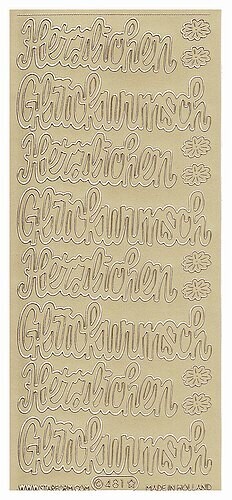 Herzlichen
Glückwunsch
Herzlichen
Glückwunsch
Herzlichen
Glückwunsch
Herzlichen
Glückwunsch
WWW.STARFORM.COM © 481 ☆ MADE IN HOLLAND